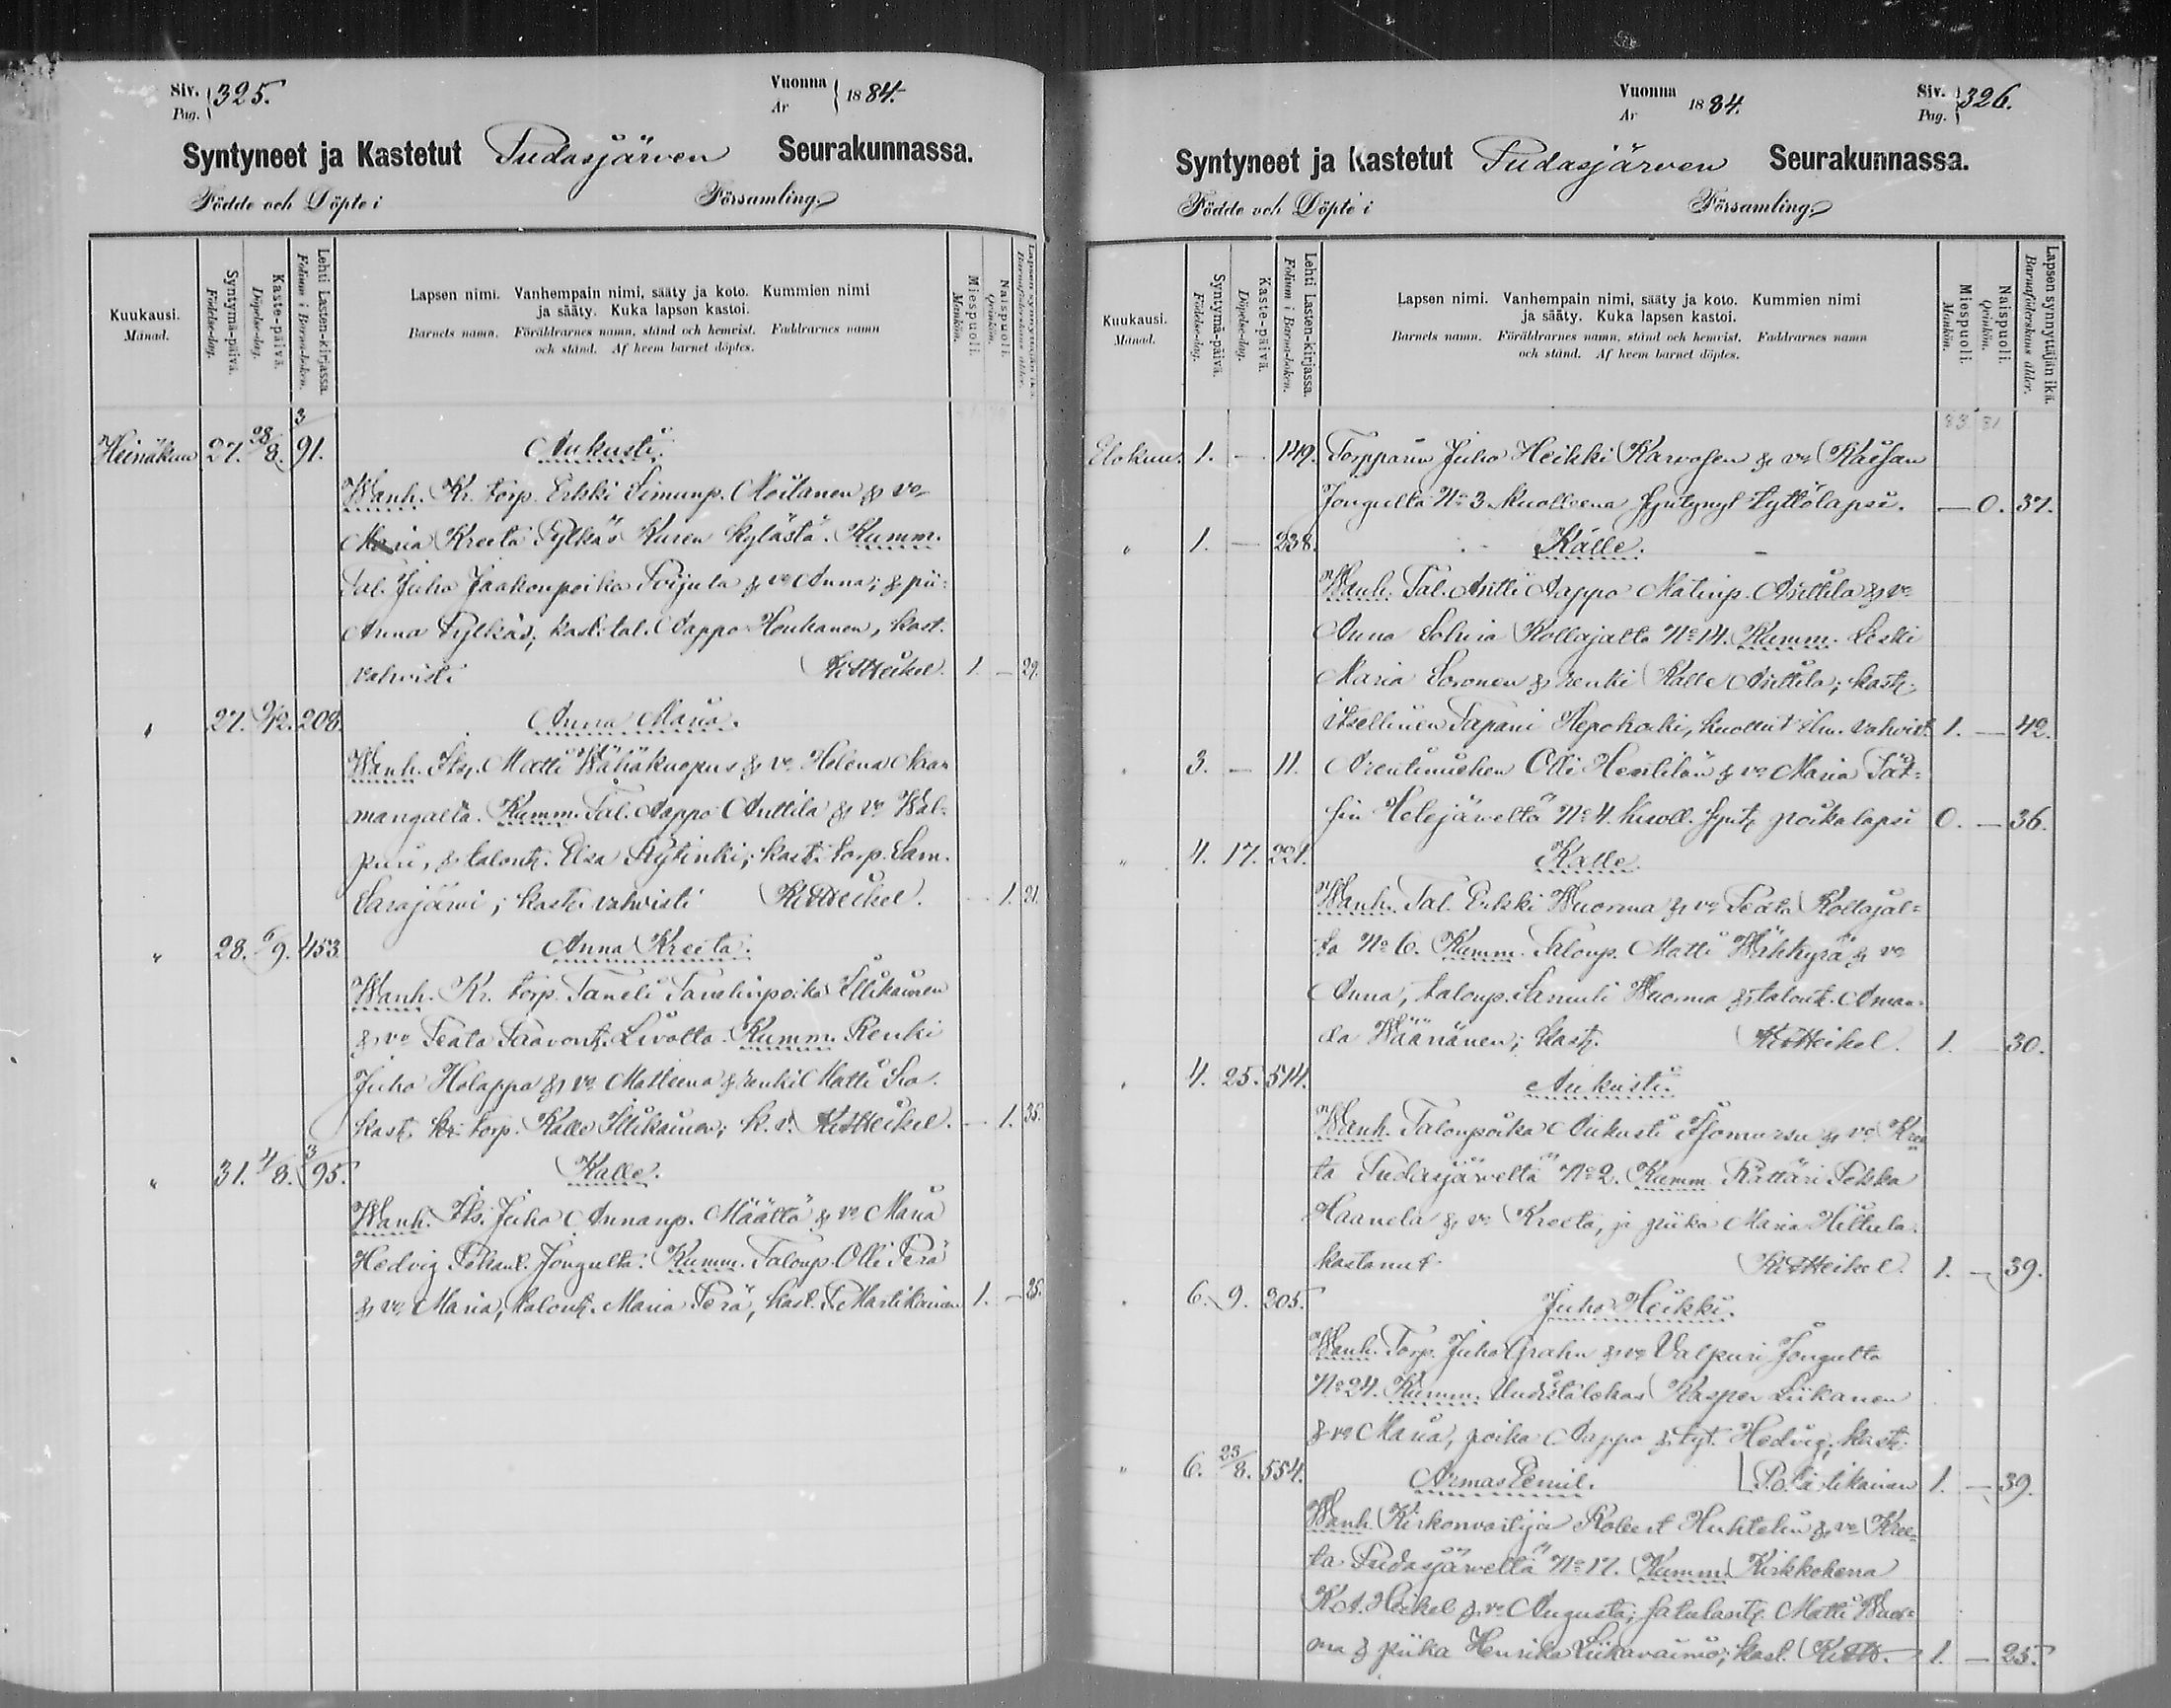 Siv. 325. Vuonna 1884.
Pag. Ar
Syntyneet ja Kastetut Pudasjärven Seurakunnassa.
Födde och Döpte i Församling
Kuukausi. Månad.
Syntymä-päivä. Födelse-dag.
Kaste-päivä. Döpelse-dag.
Lehti Lasten-kirjassa. Folium i Barna-boken.
Lapsen nimi. Vanhempain nimi, sääty ja koto. Kummien nimi
ja sääty. Kuka lapsen kastoi.
Barnets namn. Föräldrarnes namn, stånd och hemvist. Faddrarnes namn
och stånd. Af hvem barnet döptes.
Miespuoli. Mankön.
Naispuoli. Qvinkön.
Lapsen synnyttäjän ikä. Barnaföderskans ålder.
Heinäkuu 27. 28/8. 3/91. Aukusti.
Wanh. Kr. torp. Erkki Simunp. Moilanen & vo
Maria Kreeta Pylkäs Kuren kylästä. Kumm.
Tal. Juho Jaakonpoika Poijula & vo Anna; & pii-
Anna Pylkäs; kast. tal. Aappo Honkanen, kast.
vahvisti KAHeikel. 1. — 29.
" 27. 9/12. 208. Anna Maria.
Wanh. Its. Matti Wähäkuopus & vo Helena Naa-
mangalta. Kumm. Tal. Aappo Anttila & vo Wal-
puri, & talont. Elsa Kytinki; kasti torp. Sam.
Sarajärvi; kaste vahvisti KAHeikel. 1. 21.
" 28. 6/9. 453. Anna Kreeta.
Wanh. Kr. torp. Taneli Tanelinpoika Illikainen
& vo Teata Paavont. Livolta. Kumm. Renki
Juho Holappa & vo Matleena & renki Matti
kast. kr. torp. Kalle Illikainen; k. v. KAHeikel. — 1. 35.
" 31. 4/8. 3/95. Kalle.
Wanh. Its. Juho Annanp. Määttä & vo Maria
Hedvig Jongulta. Kumm. Taloup. Olli Perä
& vo Maria, talont. Maria Perä, kast. PMartikainen 1. — 25.
Vuonna 1884. Siv. 326.
Ar Pag.
Syntyneet ja Kastetut Pudasjärven Seurakunnassa.
Födde och Döpte i Församling
Kuukausi. Månad.
Syntymä-päivä. Födelse-dag.
Kaste-päivä. Döpelse-dag.
Lehti Lasten-kirjassa. Folium i Barna-boken.
Lapsen nimi. Vanhempain nimi, sääty ja koto. Kummien nimi
ja sääty. Kuka lapsen kastoi.
Barnets namn. Föräldrarnes namn, stånd och hemvist. Faddrarnes namn
och stånd. Af hvem barnet döptes.
Miespuoli. Mankön.
Naispuoli. Qvinkön.
Lapsen synnyttäjän ikä. Barnaföderskans ålder.
33 31
Elokuu. 1. — 149. Torpparin Juho Heikki Karvosen & vo Kaisan
Jongulta No 3 kuolleena syntynyt tyttölapsi. — 0. 37.
" 1. — 238. Kalle.
Wanh. Tal. Antti Aappo Matinp. Anttila & vo
Anna Sohvia Kollajalta No 14. Kumm. Leski
Maria Soronen & renki Kalle Anttila; kast.
itsellinen Tapani Hepokoski, kuollut ilm. vahvist. 1. — 42.
" 3. — 11. Arentimiehen Olli Hentilän & vo Maria
sin Hetejärveltä No 4. kuoll. synt. poikalapsi 0. — 36.
" 4. 17. 221. Kalle.
Wanh. Tal. Erkki Wuorma & vo Teata Kollajal-
ta No 6. Kumm. Taloup. Matti Wihkyrä & vo
Anna, taloup. Samuli Wuorma & talont. Aman-
da Wäänänen; kast. KAHeikel. 1. — 30.
" 4. 25. 514. Aukusti.
Wanh. Talonpoika Aukusti Jjomursu & vo Kree
ta Pudasjärveltä No 2. Kumm. Rättäri Pekka
Haanela & vo Kreeta, ja piika Maria Hiltula.
kastanut KAHeikel. 1. — 39.
" 6. 9. 205. Juho Heikki.
Wanh. Torp. Juho Grahn & vo Valpuri Jongulta
No 24. Kumm. Uudistalokas Kasper Liikanen
& vo Maria, poika Aappo & tyt. Hedvig; kast.
" 6. 23/8. 554. Armas Eemil. 1. — 39.
Wanh. Kirkonvartija Robert Huhtelin & vo Kree-
ta Pudasjärveltä No 17. Kumm. Kirkkoherra
K.A. Heikel & vo Augusta; Matti Wuor-
ma & piika Henrika Liikavainio; kast. KAH. 1. — 25.